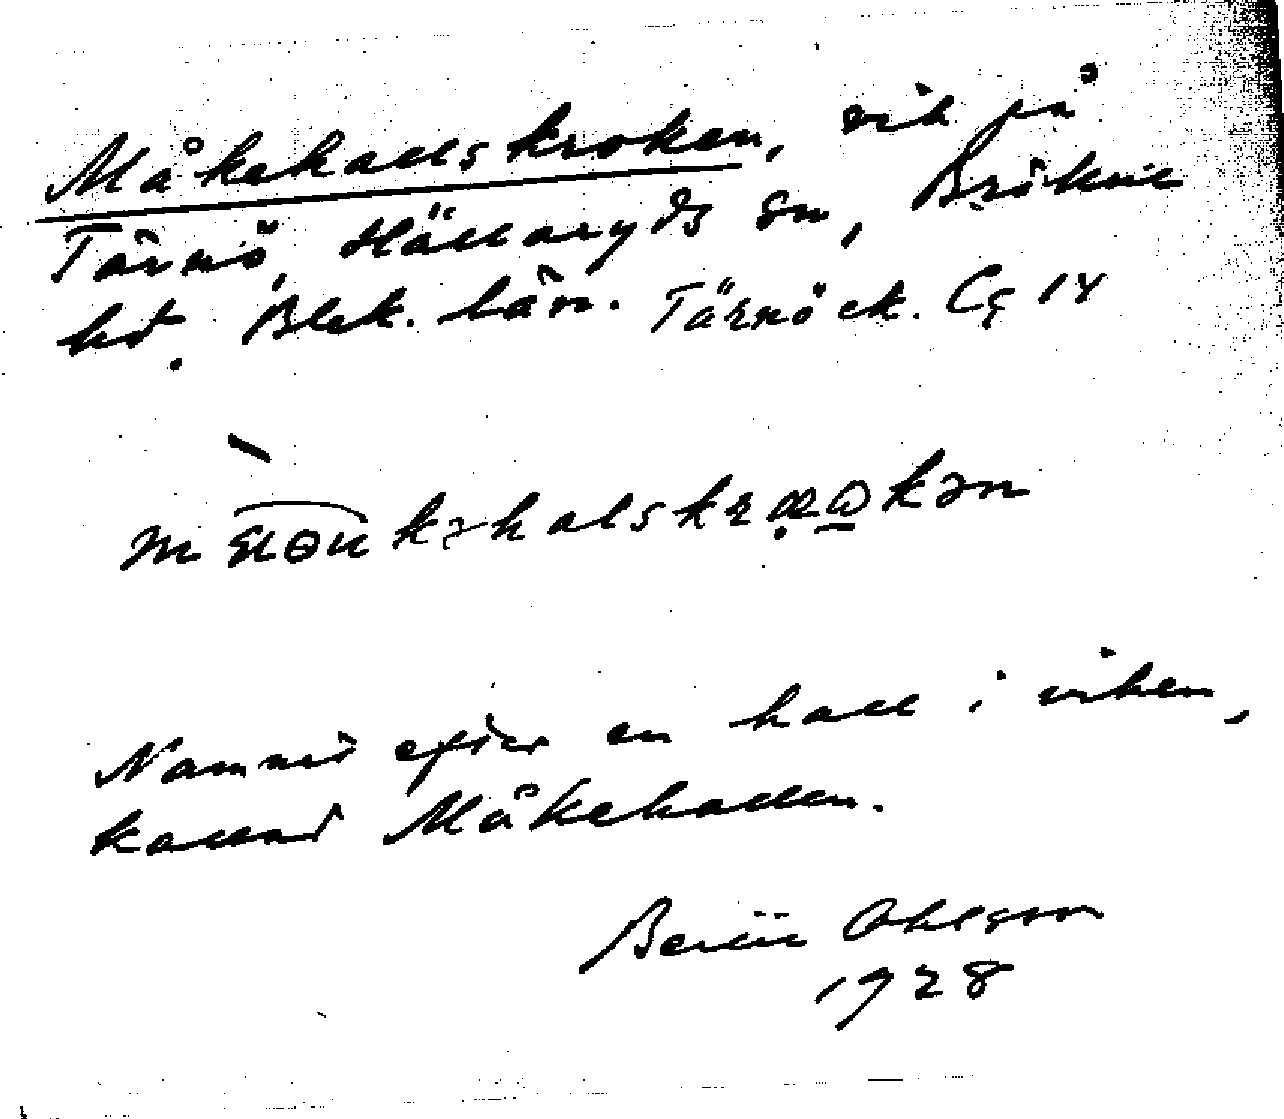 Måkehallskroken, vik på
Tärnö, Hällaryds sn, Bräkne
hd. Blek. län. Tärnö ek. Cg 14
Namnet efter en hall i viken,
kallad Måkehallen.
Bertil Ohlsson
1928